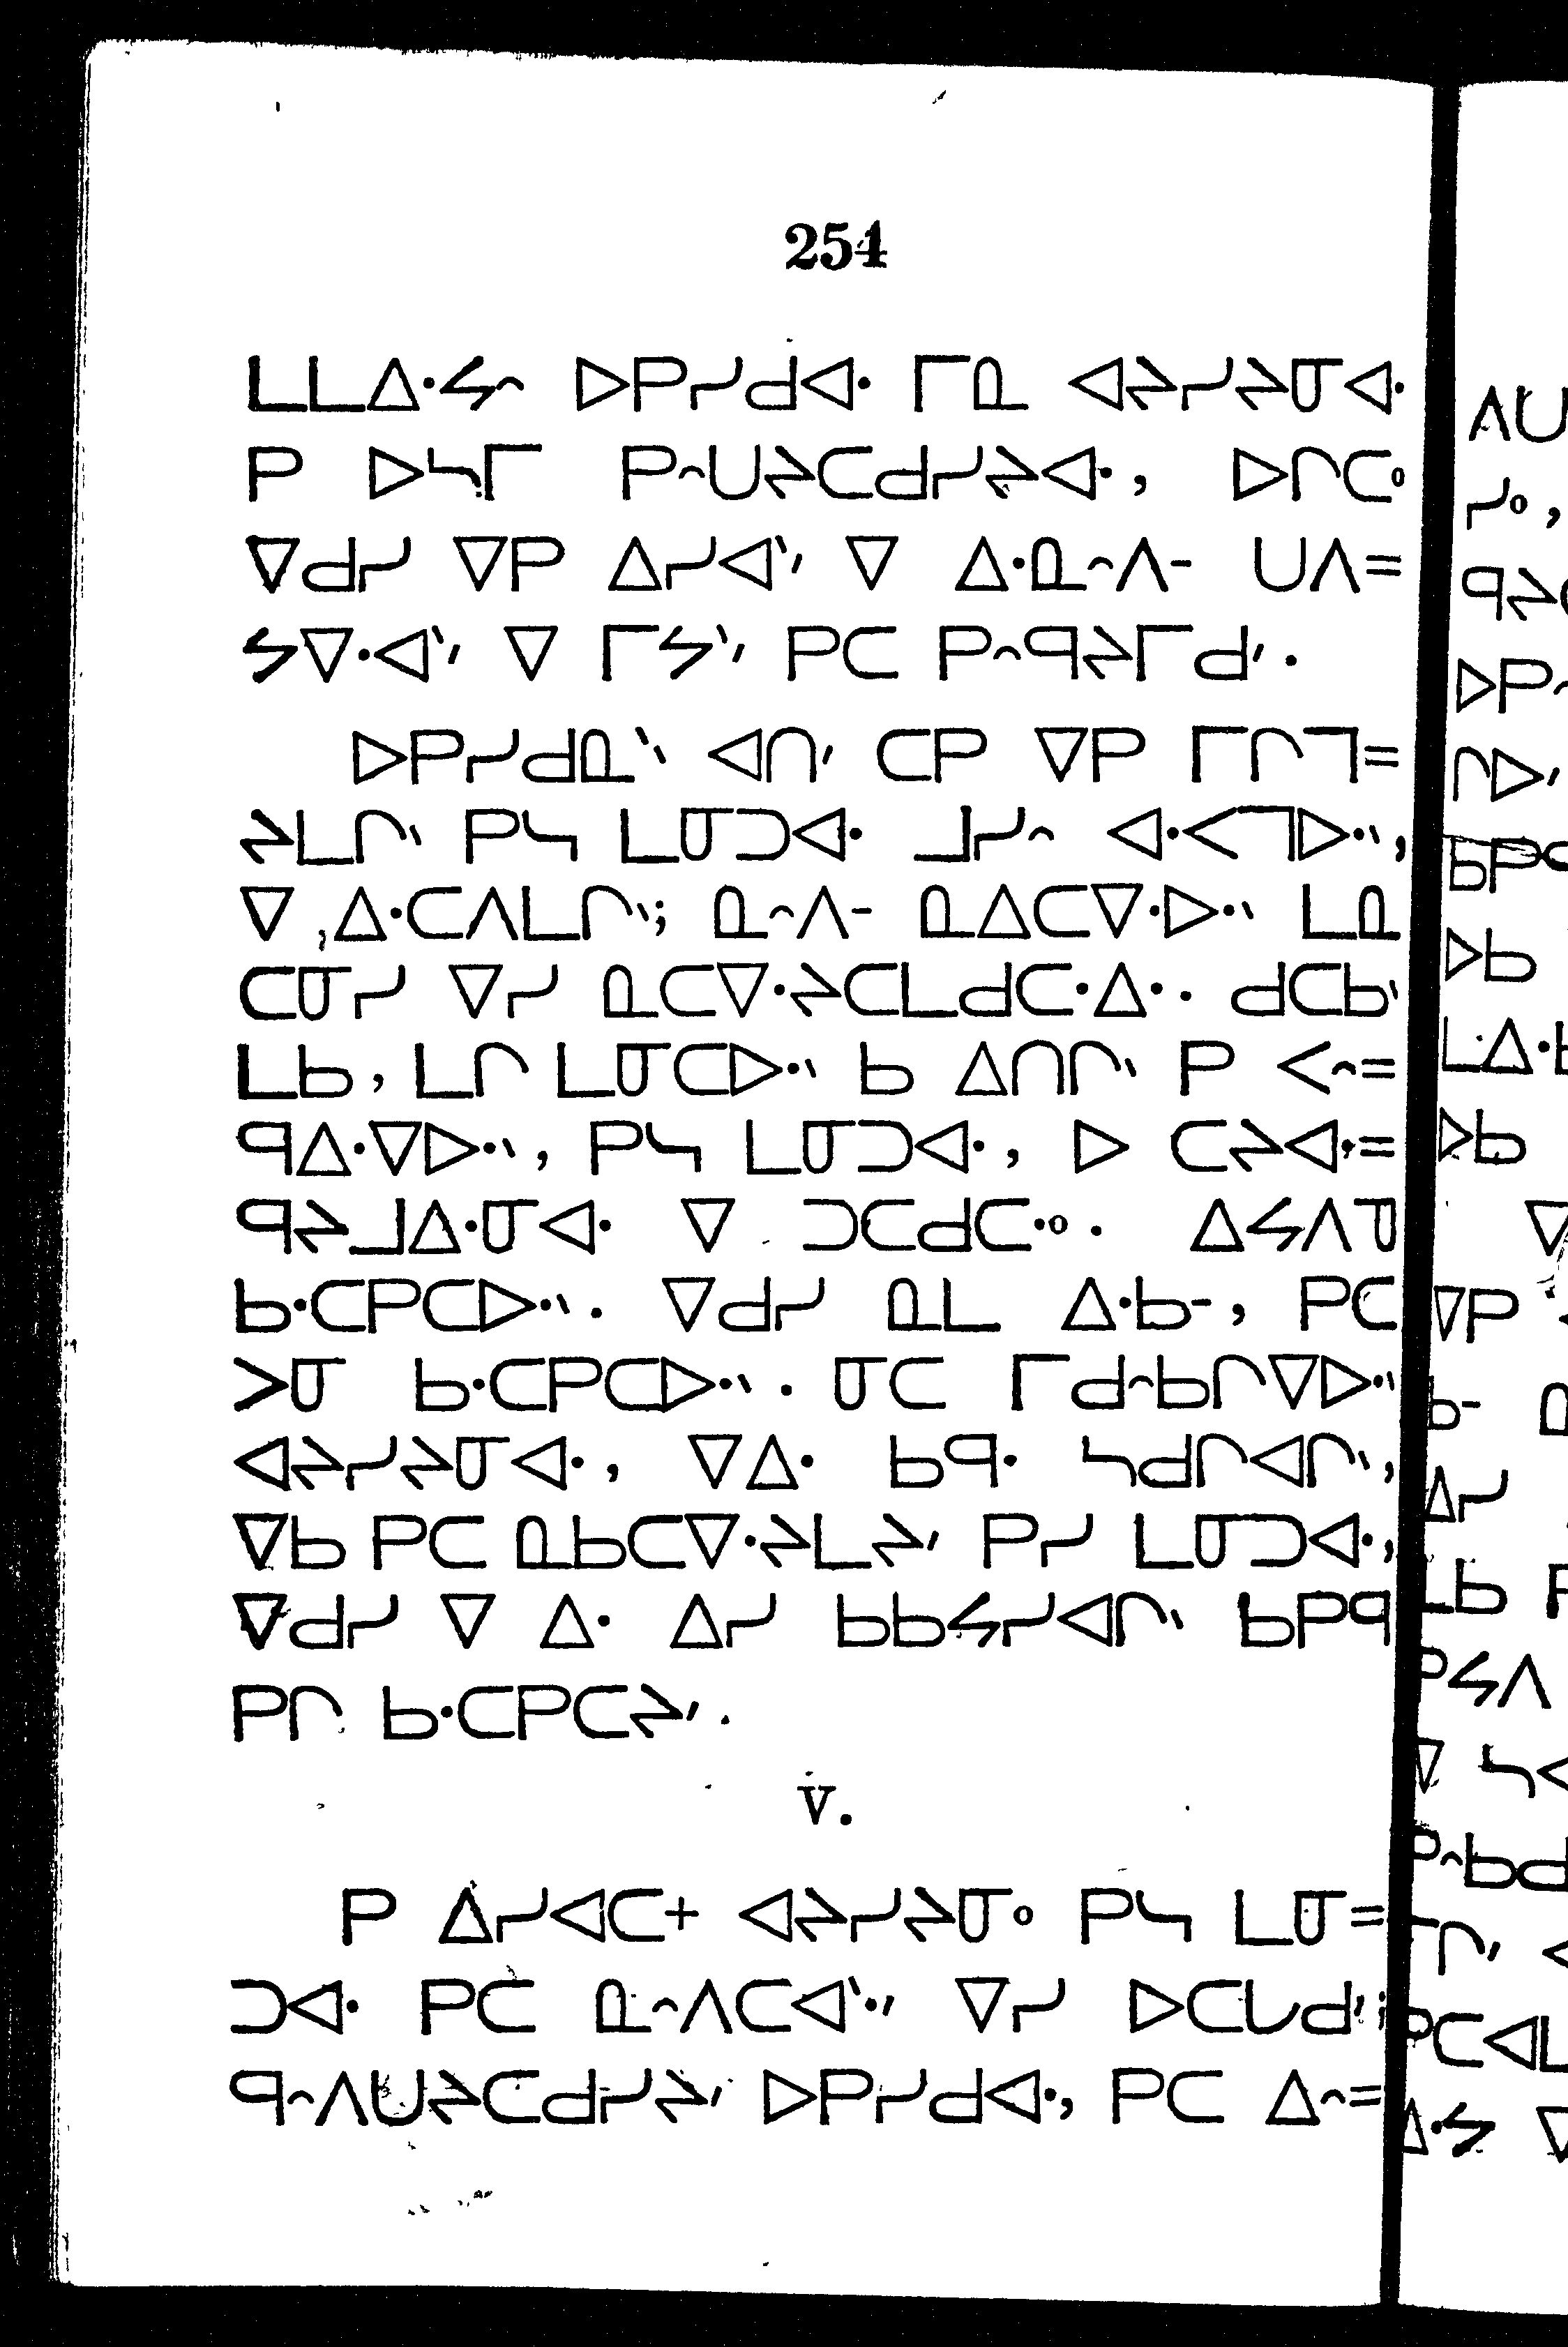 254
ᒪᒪᐃᐧᔦᐢ ᐅᑭᓯᑯᐊᐧ ᒥᓇ ᐊᔨᓯᔨᓂᐊᐧ
ᑭ ᐅᓴᒥ ᑭᐢᑌᔨᑕᑯᓯᔨᐊᐧ, ᐅᒋᑕᐤ
ᐁᑯᓯ ᐁᑭ ᐃᓯᐊᐠᐟ ᐁ ᐃᐧᓇᐢᐱᐨ ᑌᐱ=
ᔭᐁᐧᐊᐠᐟ ᐁ ᒥᔭᐠᐟ ᑭᑕ ᑭᐢᑫᔨᒥᑯᐟ.
ᐅᑭᓯᑯᓇᐠᐠ ᐊᑎᐟ ᑕᑭ ᐁᑭ ᒥᒋᒣ=
ᔨᒪᒋᐠ ᑭᓭ ᒪᓂᑐᐊᐧ ᒧᓯᐢ ᐊᐧᐸᒣᐅᐧᐠ,
ᐁ ,ᐃᐧᑕᐱᒪᒋᐠ; ᓇᐢᐱᐨ ᓇᐃᑕᐁᐧᐅᐧᐠ ᒪᓇ
ᑕᓂᓯ ᐁᓯ ᓇᑕᐁᐧᔨᑕᒪᑯᑕᐧᐃᐧ. ᑯᑕᑲᐠ
ᒪᑲ, ᒪᒋ ᒪᓂᑕᐅᐧᐠ ᑲ ᐃᑎᒋᐠ ᑭ ᐸᐢ=
ᑫᐃᐧᐁᐅᐧᐠ, ᑭᓭ ᒪᓂᑐᐊᐧ, ᐅ ᑕᔨᐊᐧ=
ᑫᔨᒧᐃᐧᓂᐊᐧ ᐁ ᑐᑕᑯᑕᐧᐤ. ᐃᔦᐱᓀ
ᑲᐧᑕᑭᑕᐅᐧᐠ. ᐁᑯᓯ ᓇᒪ ᐃᐧᑲᐨ, ᑭᑕ
ᐳᓂ ᑲᐧᑕᑭᑕᐅᐧᐠ. ᓂᑕ ᒥᑯᐢᑲᒋᐁᐅᐧᐠ
ᐊᔨᓯᔨᓂᐊᐧ, ᐁᐃᐧ ᑲᑫᐧ ᓴᑯᒋᐊᒋᐠ,
ᐁᑲ ᑭᑕ ᓇᑲᑕᐁᐧᔨᒪᔨᐟ ᑭᓯ ᒪᓂᑐᐊᐧ,
ᐁᑯᓯ ᐁ ᐃᐧ ᐃᓯ ᑲᑲᔦᓯᐊᒋᐠ ᑲᑭᑫ
ᑭᒋ ᑲᐧᑕᑭᑕᔨᐟ.
V.
ᑭ ᐃᓯᐊᑕ+ ᐊᔨᓯᔨᓂᐤ ᑭᓭ ᒪᓂ=
ᑐᐊᐧ ᑭᑕ ᓇᐢᐱᑕᐊᐠᐧᐟ ᐁᓯ ᐅᑕᒐᑯᐟ;
ᑫᐢᐱᑌᔨᑕᑯᓯᔨᐟ ᐅᑭᓯᑯᐊᐧ, ᑭᑕ ᐃᐢ=